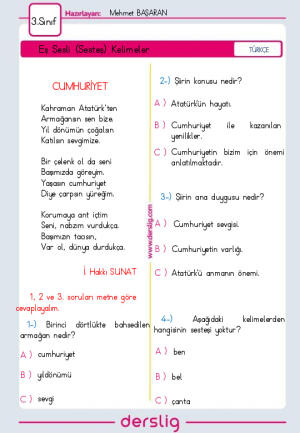 3.Sınıf
Hazırlayan: Mehmet BAŞARAN
Eş Sesli (Sesteş) Kelimeler
TÜRKÇE
CUMHURİYET
Kahraman Atatürk'ten
Armağansın sen bize.
Yıl dönümün çoğalsın
Katılsın sevgimize.
Bir çelenk ol da seni
Başımızda göreyim.
Yaşasın cumhuriyet
Diye çarpsın yüreğim.
Korumaya ant içtim
Seni, nabzım vurdukça.
Başımızın tacısın,
Var ol, dünya durdukça.
İ. Hakkı SUNAT
1, 2 ve 3. soruları metne göre
cevaplayalım.
1-) Birinci dörtlükte bahsedilen
armağan nedir?
A ) cumhuriyet
B ) yıldönümü
C ) sevgi
www.derslig.com
2-) Şiirin konusu nedir?
A ) Atatürk'ün hayatı.
B ) Cumhuriyet ile kazanılan
yenilikler.
C ) Cumhuriyetin bizim için önemi
anlatılmaktadır.
3-) Şiirin ana duygusu nedir?
A ) Cumhuriyet sevgisi.
B ) Cumhuriyetin varlığı.
C ) Atatürk'ü anmanın önemi.
4-) Aşağıdaki kelimelerden
hangisinin sesteşi yoktur?
A ) ben
B ) bel
C ) çanta
derslig